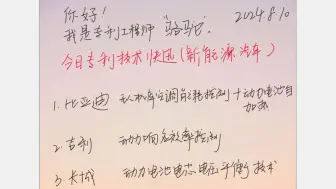 你好！
2024.8.10
我是专利工程师"骆马记"
今日专利技术快迅(新能源汽车)
1. 比亚迪 无人机库空调能耗控制+动力电池自加热
2. 吉利 动力响应效率控制
3. 长城 动力电池电芯电压平衡技术